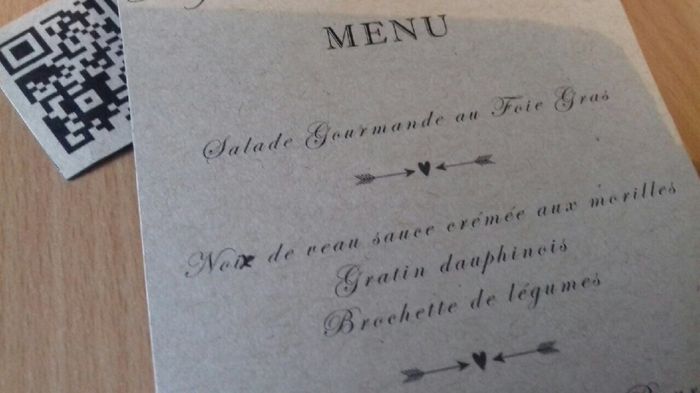 MENU
Salade Gourmande au Foie Gras
Noix de veau sauce crémée aux morilles
Gratin dauphinois
Brochette de légumes